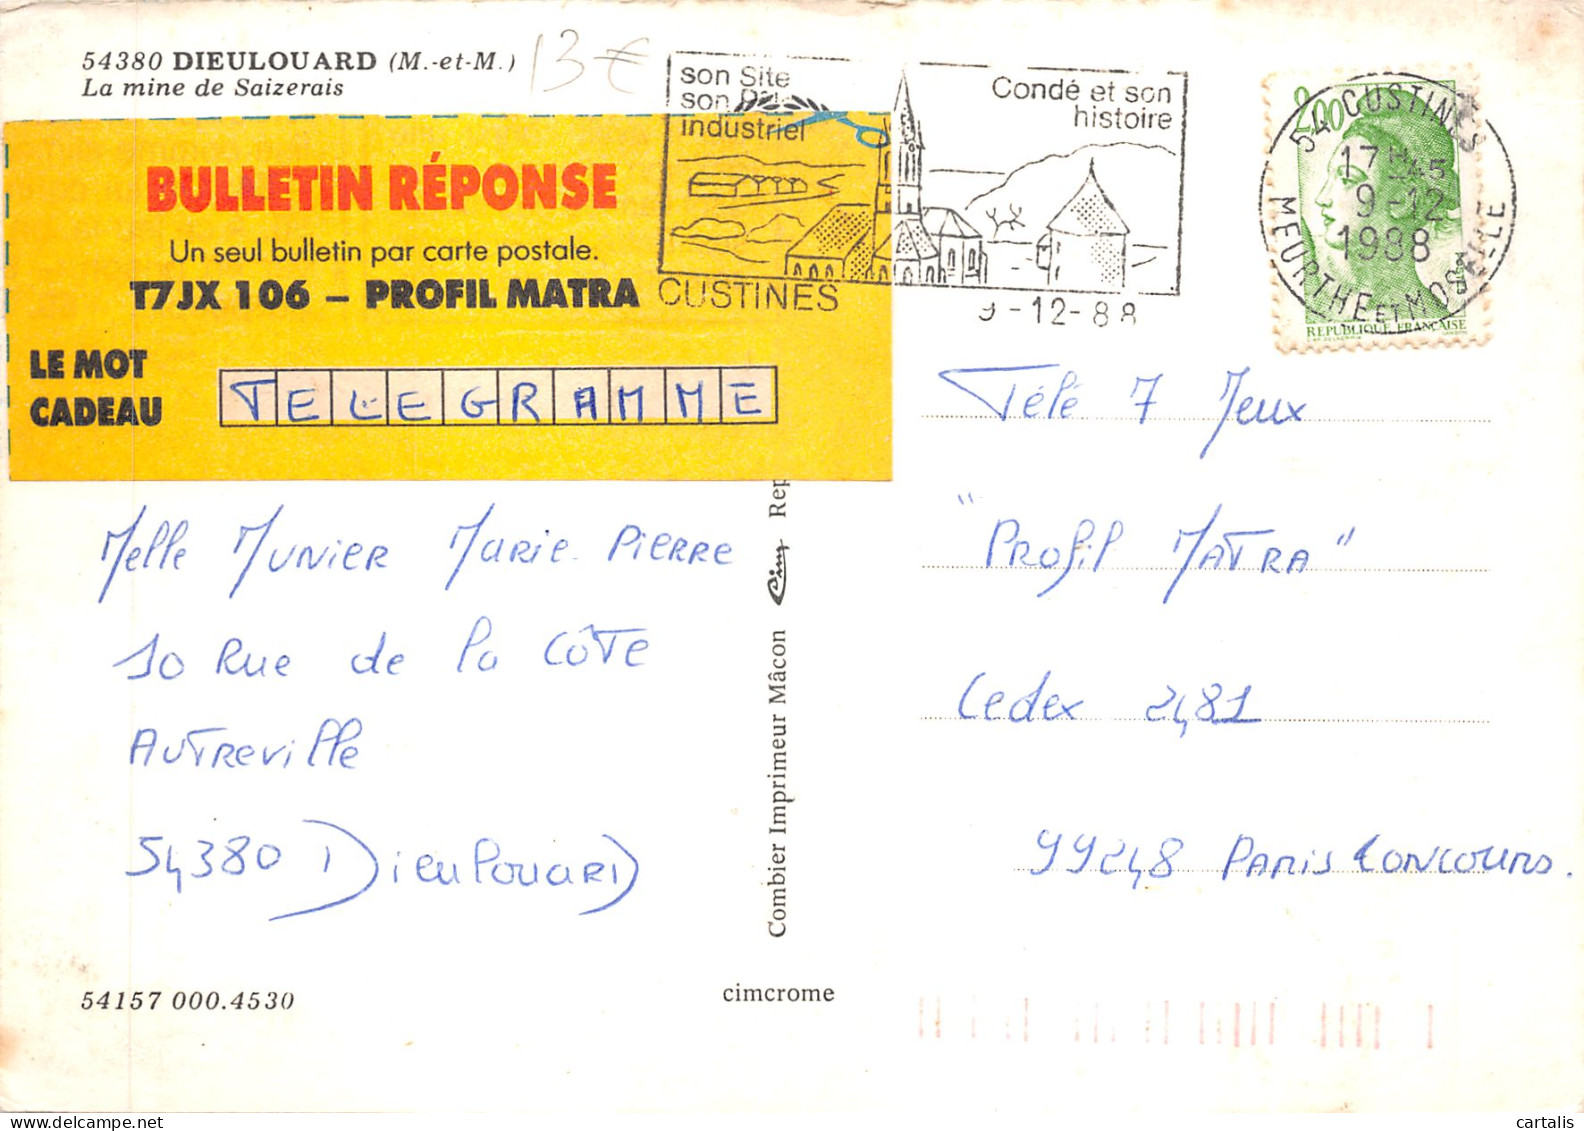 54380 DIEULOUARD (M.-et-M.)
La mine de Saizerais
13 €
son Site
son
industriel
Condé et son
histoire
CUSTINES
9-12-88
2,00
54 CUSTINES
17H45
9-12
1988
MEURTHE ET MOSELLE
REPUBLIQUE FRANÇAISE
BULLETIN RÉPONSE
Un seul bulletin par carte postale.
T7JX 106 – PROFIL MATRA
LE MOT
CADEAU
TELEGRAMME
Melle MUNIER MARIE-PIERRE
10 Rue de la CÔTE
AUTREVille
54380 DieulouARD
Télé 7 Jeux
"PROfil MATRA"
Cedex 2481
99248 PARIS CONCOURS.
Combier Imprimeur Mâcon Cim Rep
54157 000.4530
cimcrome
cartalis